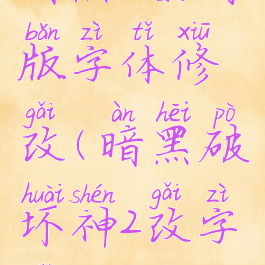 bǎn zì tǐ xiū
版字体修
gǎi àn hēi pò
改(暗黑破
huài shén gǎi zì
坏神2改字